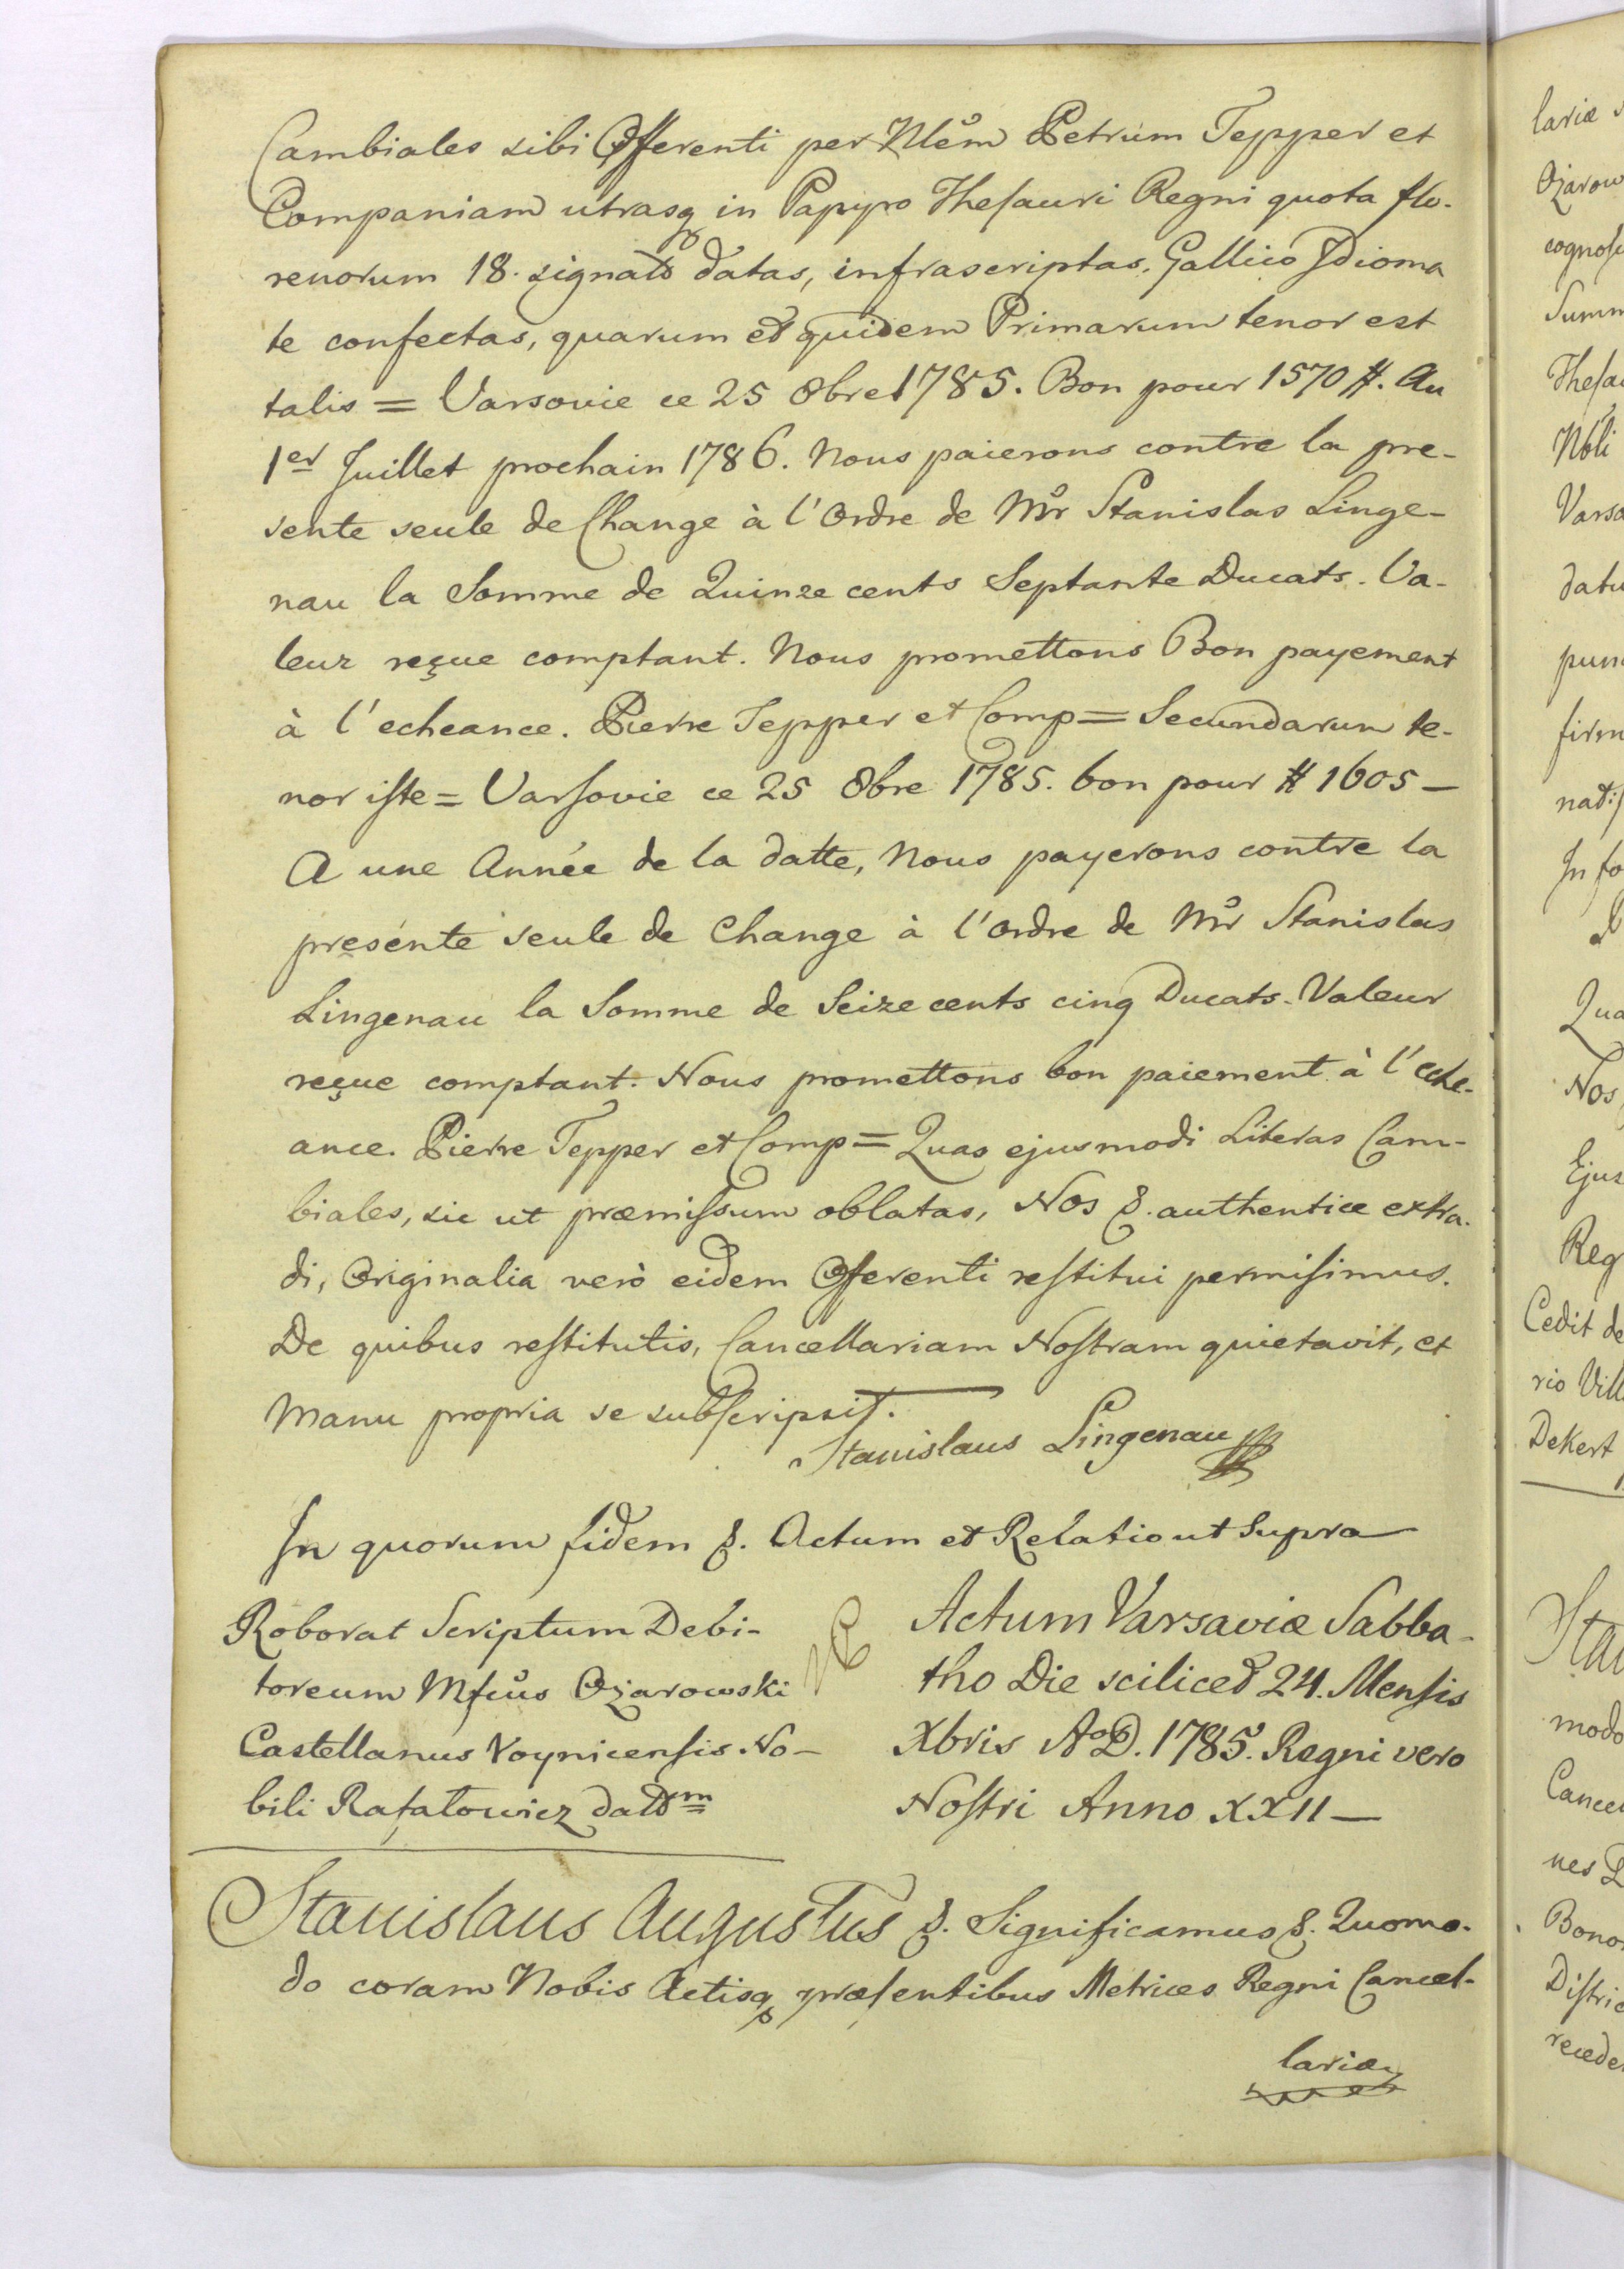 Cambiales sibi Offerenti per Nlem Petrum Tepper et
Companiam utrasq in Papyro Thesauri Regni quota flo-
renorum 18. signato datas, infrascriptas, Gallico Idioma
te confectas, quarum et quidem Primarum tenor est
talis = Varsovie ce 25 8bre 1785. Bon pour 1570 #. Au
1er Juillet prochain 1786. Nous paierons contre la pre-
sente seule de Change à l'Ordre de Mr Stanislas Linge-
nau la Somme de Quinze cents Septante Ducats. Va-
leur reçue comptant. Nous promettons Bon payement
à l'echeance. Pierre Tepper et Comp = Secundarum te-
nor iste = Varsovie ce 25 8bre 1785. bon pour # 1605 —
A une Année de la datte, Nous payerons contre la
presente seule de Change à l'Ordre de Mr Stanislas
Lingenau la Somme de Seize cents cinq Ducats. Valeur
reçue comptant. Nous promettons bon paiement à l'eche-
ance. Pierre Tepper et Comp = Quas ejusmodi Literas Cam-
biales, sic ut præmissum oblatas, Nos &. authentice extra-
di, Originalia verò eidem Offerenti restitui permisimus.
De quibus restitutis, Cancellariam Nostram quietavit, et
Manu propria se subscripsit.
Stanislaus Lingenau
In quorum fidem &. Actum et Relatio ut Supra
Roborat Scriptum Debi-
toreum Mfcus Ożarowski
Castellanus Voynicensis No-
bili Rafałowicz dattm
Actum Varsaviæ Sabba-
tho Die scilicet 24. Mensis
Xbris AoD. 1785. Regni vero
Nostri Anno XXII —
Stanislaus Augustus &. Significamus &. Quomo-
do coram Nobis Actisq præsentibus Metrices Regni Cancel-
lariæ
lariæ
Ożarow
cognosc
Summ
Thesau
Nbli
Varso
datu
pun
firm
nat
In fo
Qua
Nos
Ejus
Reg
Cedit de
rio Vill
Dekert
Stan
modo
Cancel
nes
Bono
Distric
recede